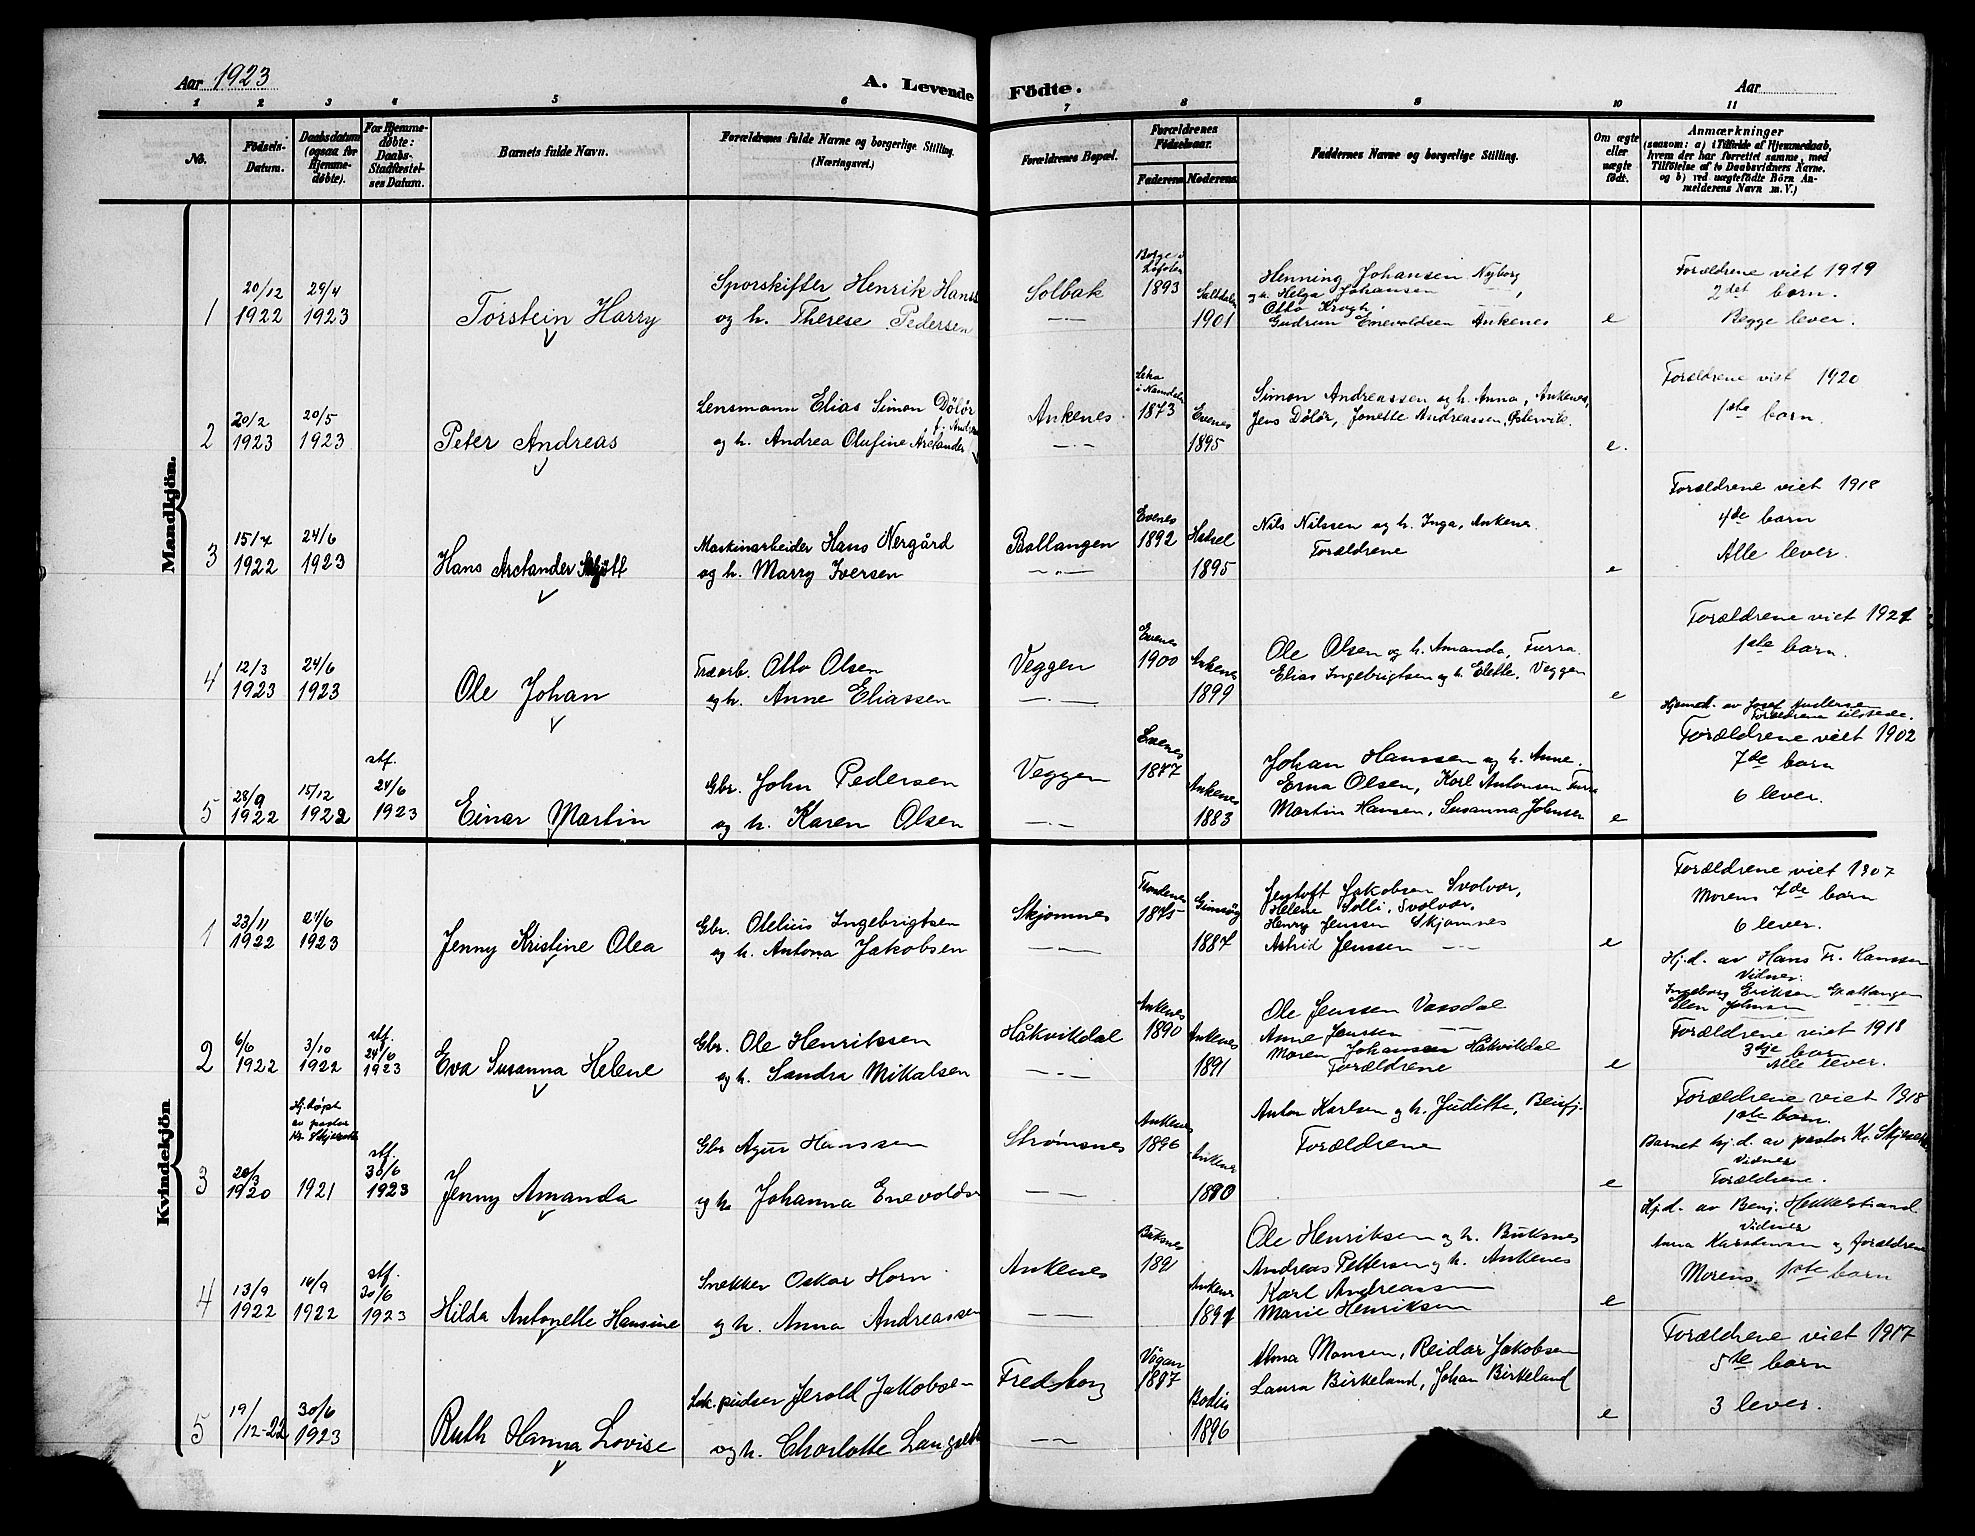 Aar 1923
A. Levende Födte.
Aar
1 2 3 4 5 6 7 8 9 10 11
No.
Födsels-Datum.
Daabsdatum (ogsaa for Hjemme-döbte).
For Hjemme-döbte: Daabs-Stadfæstel-ses Datum.
Barnets fulde Navn.
Forældrenes fulde Navne og borgerlige Stilling. (Næringsvei.)
Forældrenes Bopæl.
Forældrenes Födselsaar.
Faderens Moderens
Faddernes Navne og borgerlige Stilling.
Om ægte eller uægte födt.
Anmærkninger
(saasom: a) i Tilfælde af Hjemmedaab, hvem der har forrettet samme, med Tilföielse af to Daabsvidners Navne, og b) ved uægtefödte Börn Anmelderens Navn m. V.)
Mandkjön.
1 20/12 1922 29/4 1923 Torstein Harry
Sporskifter Henrik Hans
og h. Therese Pedersen
Solbak
Borge i Lofoten 1893
Saltdalen 1901
Henning Johansen Nyborg
g.h. Helga Johansen
Otto Krogh,
Gudrun Enevoldsen Ankenes
e
Forældrene viet 1919
2det barn.
Begge lever.
2 20/2 1923 20/5 1923 Peter Andreas
Lensmann Elias Simon Dölör
og h. Andrea Olufine Arctander
Ankenes
Leka i Namdalen 1873
Evenes 1895
Simon Andreassen og h. Anna, Ankenes,
Jens Dölör, Jonette Andreassen,
e.
Forældrene viet 1920
1ste barn.
3 15/4 1922 24/6 1923 Hans Arctander
Maskinarbeider Hans Nergård
og h. Marry Iversen
Ballangen
Evenes 1892
Hadsel 1895
Nils Nilssen og h. Inga, Ankenes.
Forældrene
e
Forældrene viet 1918
4de barn
Alle lever.
4 12/3 1923 24/6 1923 Ole Johan
Træarb. Otto Olsen
og h. Anne Eliassen
Veggen
Evenes 1900
Ankenes 1899
Ole Olsen og h. Amanda, Furra.
Elias Ingebrigtsen og h. Elette, Veggen
e
Forældrene viet 1921
1ste barn.
5 28/9 1922 15/12 1922 stf. 24/6 1923 Einar Martin
Gbr. John Pedersen
og h. Karen Olsen
Veggen
Evenes 1877
Ankenes 1883
Johan Hanssen og h. Anne.
Erna Olsen, Karl Antonsen Furra
Martin Hansen, Susanna Johnsen
e
Hjemmed. av Josef Andersen
Forældrene tilstede.
Forældrene viet 1902
7de barn
6 lever.
Kvindekjön
1 23/11 1922 24/6 1923 Jenny Kristine Olea
Gbr. Otelius Ingebrigtsen
og h. Antona Jakobsen
Skjomnes
Trondenes 1875
Gimsöy 1887
Jentoft Jakobsen Svolvær,
Helene Solli, Svolvær,
Henry Jenssen Skjomnes
Astrid Jenssen
e
Forældrene viet 1907
Morens 7de barn
6 lever.
2 6/6 1922 3/10 1922 stf. 24/6 1923 Eva Susanna Helene
Gbr. Ole Henriksen
og h. Sandra Mikalsen
Håkvikdal
Ankenes 1890
Ankenes 1891
Ole Jenssen Vassdal
Anne Jenssen
Moren Johansen Håkvikdal
Forældrene
e
Hj.d. av Hans Fr. Hanssen
Vidner.
Ingeborg Eriksen
Forældrene viet 1918
3dje barn
Alle lever.
3 20/3 1920 Hj.döpt av pastor Kr. Skjeseth 1921 stf. 30/6 1923 Jenny Amanda
Gbr Agur Hanssen
og h. Johanna Enevolds
Strømsnes
Ankenes 1896
Ankenes 1890
Anton Karlsen og h. Juditte, Beisfj.
Forældrene
e
Forældrene viet 1918
1ste barn.
Barnet hj.d. av pastor Kr. Skjeseth
Vidner
Forældrene.
4 13/9 1922 14/9 1922 stf. 30/6 1923 Hilda Antonette Hansine
Snekker Oskar Horn
og h. Anna Andreassen
Ankenes
Buksnes 1891
Ankenes 1891
Ole Henriksen og h. Buksnes
Andreas Pettersen og h. Ankenes
Karl Andreassen
Marie Henriksen
e
Hj.d. av Benj. Hekkelstrand
Vidner
Anna Karstensen og forældrene
Morens 1ste barn
5 19/12-22 30/6 1923 Ruth Hanna Lovise
Lok. pudser Jerold Jakobsen
og h. Charlotte
Fredsborg
Vågan 1897
Bodin 1896
Alma Monsen, Reidar Jakobsen
Laura Birkeland, Johan Birkeland
e
Forældrene viet 1917
5te barn
3 lever.